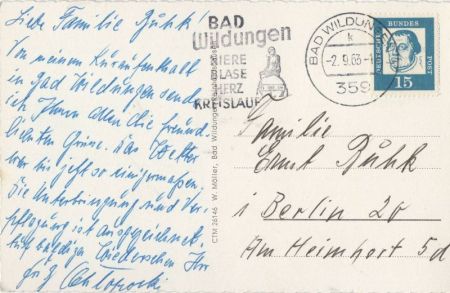 Liebe Familie Buhk!
Von meinem Kuraufenthalt
in Bad Wildungen sende
ich Ihnen allen die freund-
lichsten Grüsse. Das Wetter
war bis jetzt so einigermaßen,
die Unterbringung und Ver-
pflegung ist ausgezeichnet.
baldiges Wiedersehen Ihr
BAD
Wildungen
NIERE
BLASE
HERZ
KREISLAUF
BAD WILDUNGEN
k
-2.9.63-
359
DEUTSCHE BUNDES POST
15
CTM 26146 W. Möller, Bad Wildungen
Familie
Ernst Buhk
1 Berlin 20
Am Heimhort 5d